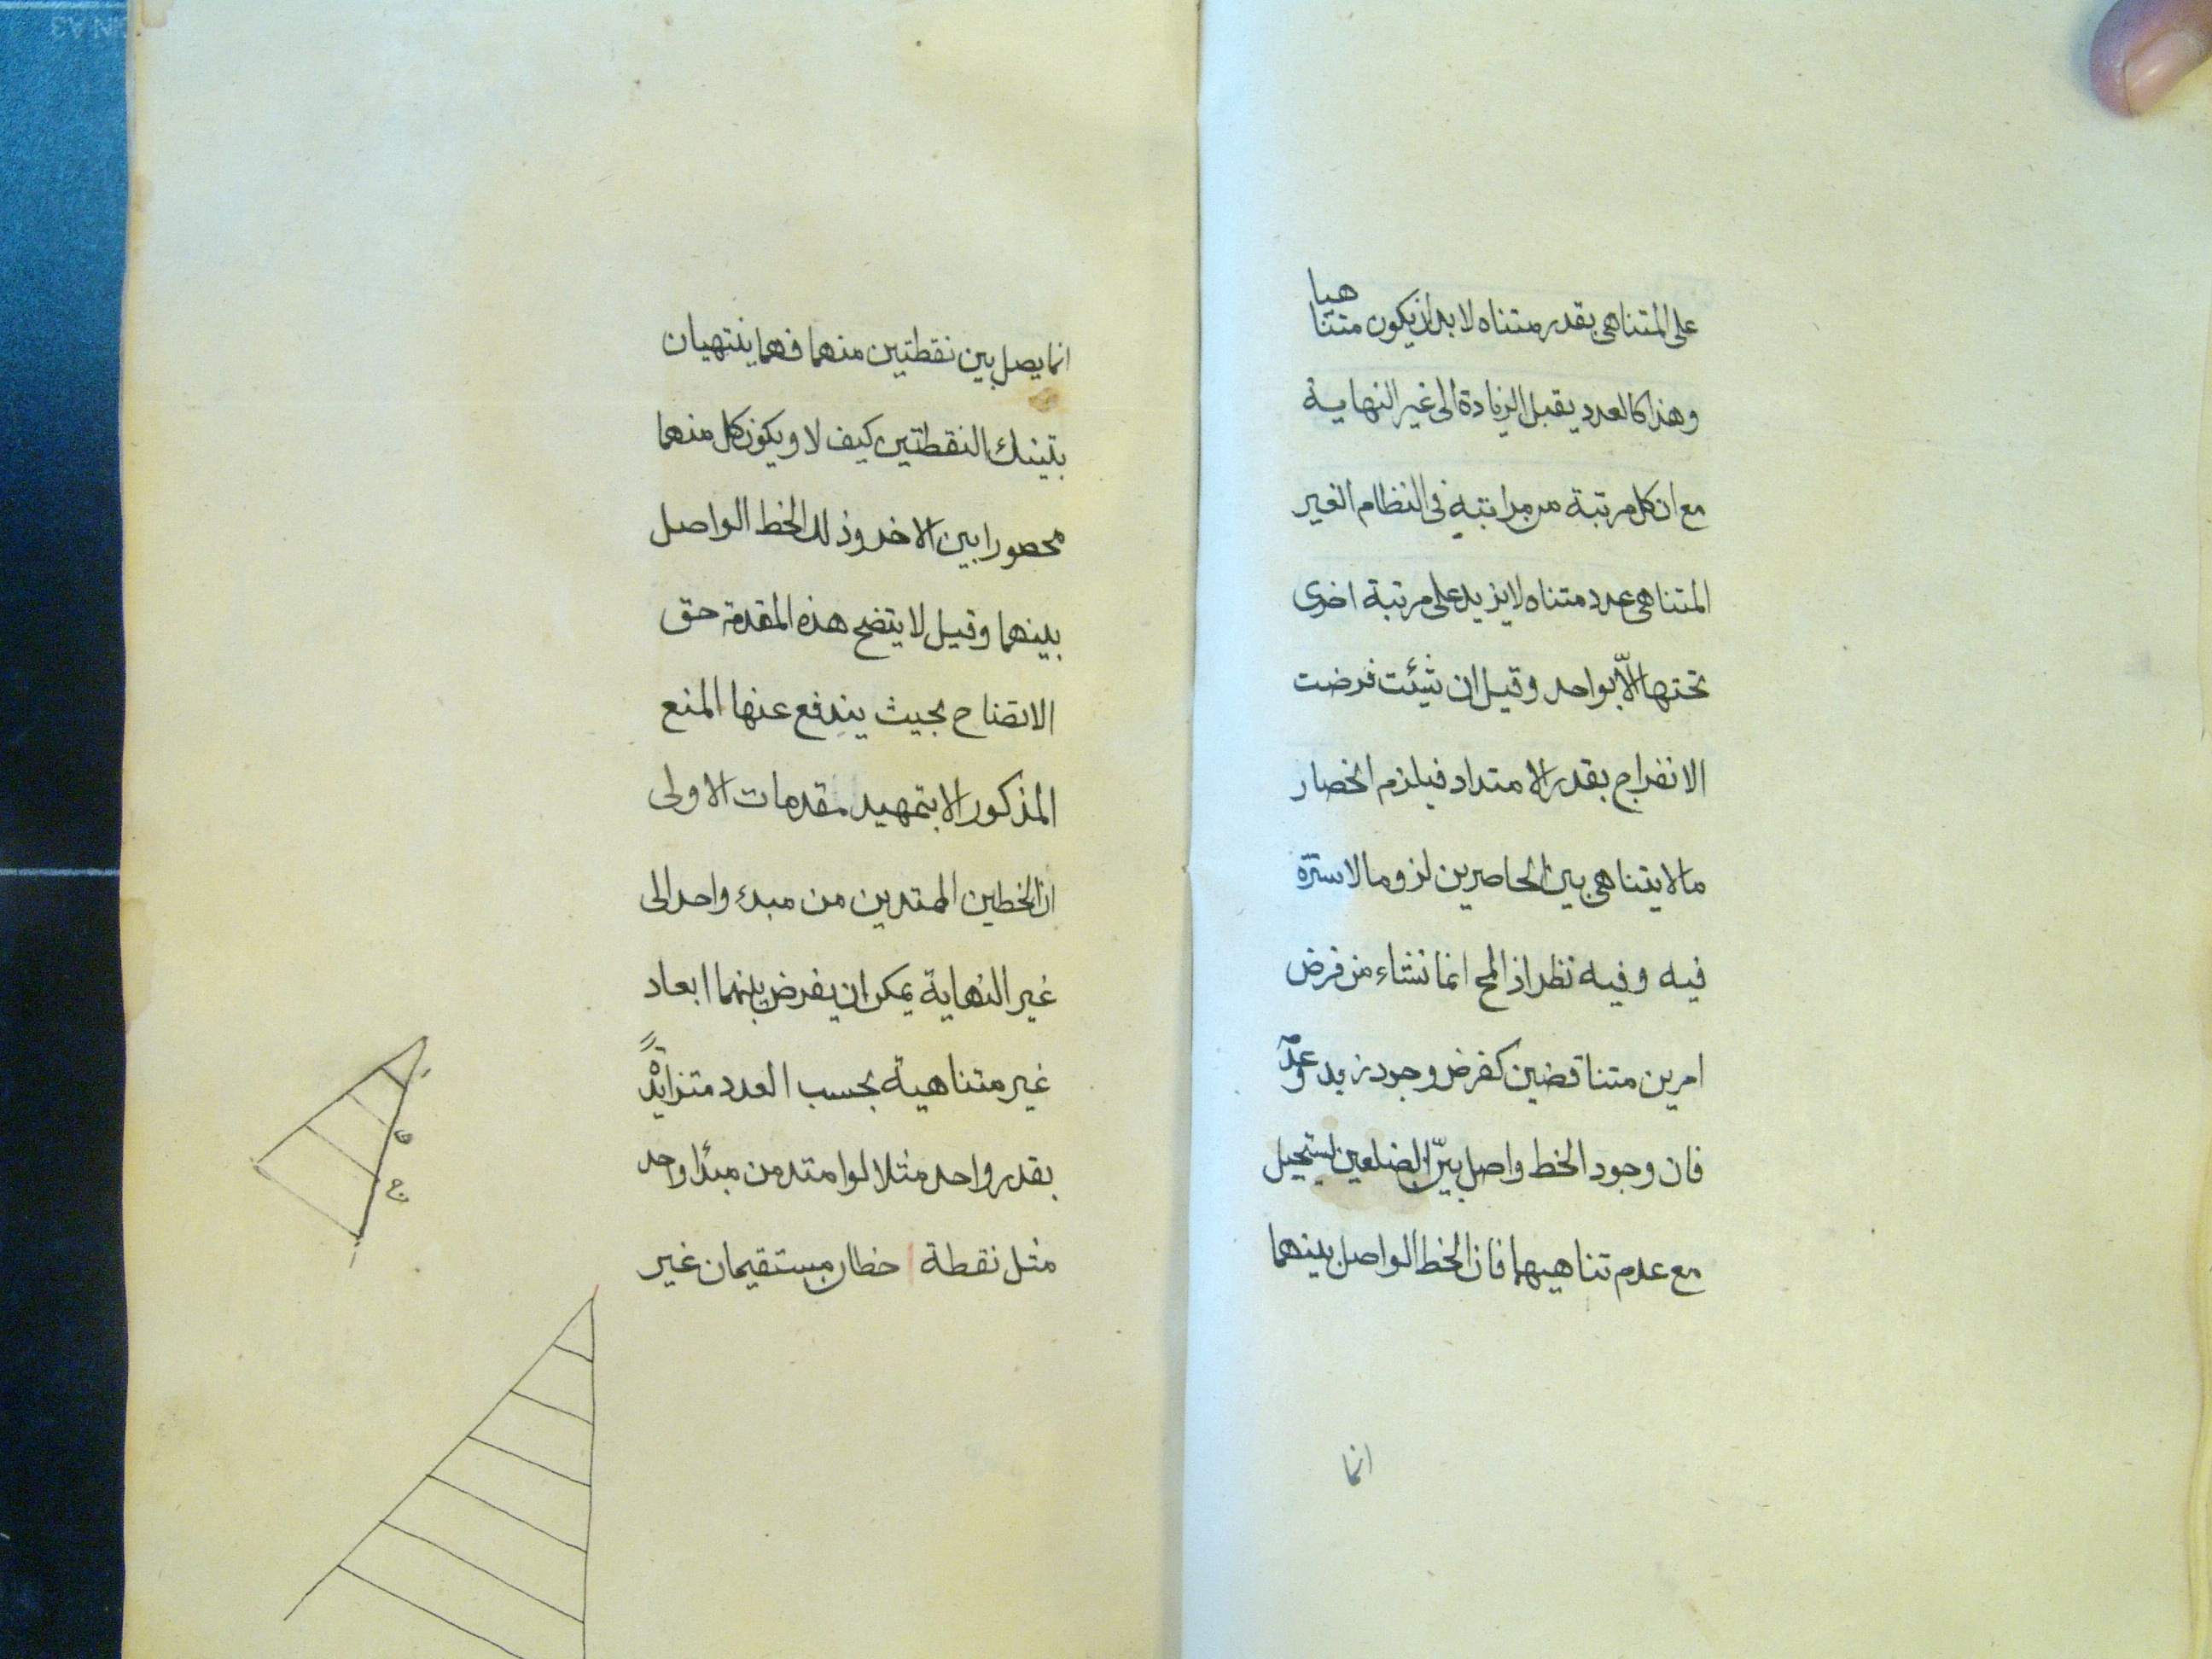 على المتناهى بقدر متناه لا بد ان يكون متناهيا
وهذا كالعدد يقبل الزيادة الى غير النهاية
مع ان كل مرتبة من مراتبه فى النظام الغير
المتناهى عدد متناه لا يزيد على مرتبة اخرى
تحتها الّا بواحد وقيل ان شئت فرضت
الانفراج بقدر الامتداد فيلزم انحصار
ما لا يتناهى بين الحاصرين لزوما لا سترة
فيه وفيه نظر اذ المح انما نشاء من فرض
امرين متناقضين كفرض وجود زيد وعدمه
فان وجود الخط واصل بين الضلعين يستحيل
مع عدم تناهيهما فان الخط الواصل بينهما
انما
انما يصل بين نقطتين منهما فهما ينتهيان
بتينك النقطتين كيف لا ويكون كل منهما
محصورا بين الاخر وذلك الخط الواصل
بينهما وقيل لا يتضح هذه المقدمة حق
الاتضاح بحيث يندفع عنها المنع
المذكور الا بتمهيد مقدمات الاولى
ان الخطين الممتدين من مبدء واحد الى
غير النهاية يمكن ان يفرض بينهما ابعاد
غير متناهية بحسب العدد متزايدة
بقدر واحد مثلا لو امتد من مبدأ واحد
مثل نقطة ا خطان مستقيمان غير
ج